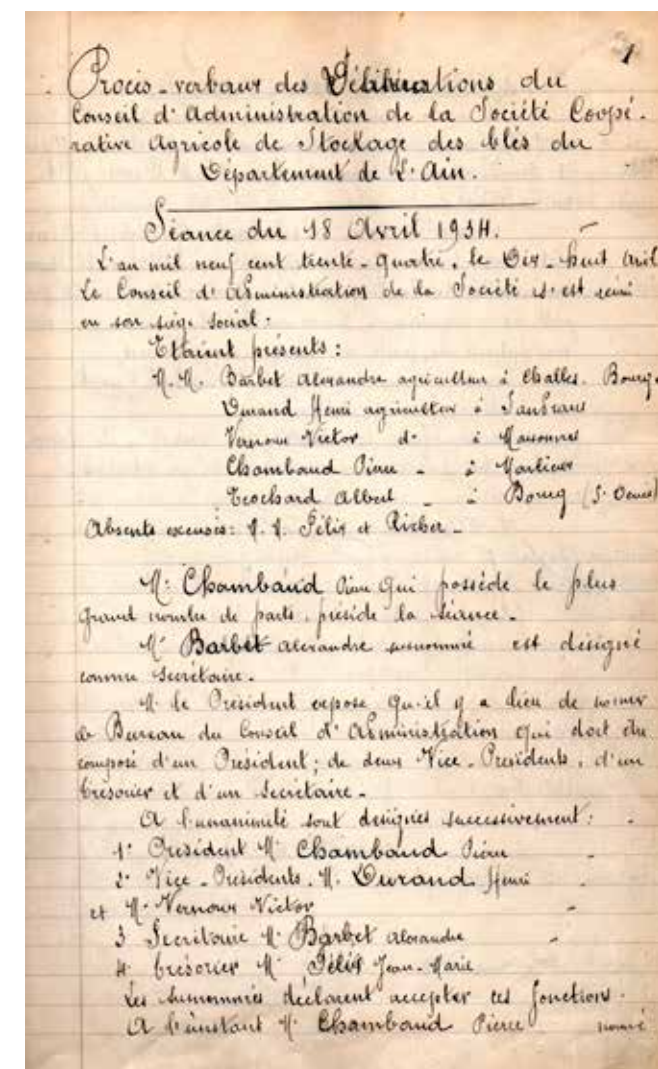 1
Procès-verbaux des Délibérations du
Conseil d'Administration de la Société Coopé-
rative Agricole de Stockage des blés du
Département de l'Ain.
Séance du 18 Avril 1934.
L'an mil neuf cent trente-quatre, le Dix-huit Avril
Le Conseil d'Administration de la Société s'est réuni
en son siège social:
Etaient présents:
M.M. Barbet Alexandre agriculteur à Challes. Bourg.
Durand Henri agriculteur à
Vernoux Victor d° à
Chambaud Pierre - à Marlieux
Trochard Albert - à Bourg (St Denis)
Absents excusés: M.M. Félix et Richer -
Mr Chambaud Pierre qui possède le plus
grand nombre de parts, préside la séance -
Mr Barbet Alexandre susnommé est désigné
comme secrétaire -
M. le Président expose qu'il y a lieu de nommer
le Bureau du Conseil d'Administration qui doit être
composé d'un Président; de deux Vice-Présidents, d'un
trésorier et d'un secrétaire -
A l'unanimité sont désignés successivement:
1° Président Mr Chambaud Pierre
2° Vice-Présidents. M. Durand Henri
et M. Vernoux Victor
3 Secrétaire Mr Barbet Alexandre
4 trésorier Mr Félix Jean-Marie
Les susnommés déclarent accepter ces fonctions.
A l'instant Mr Chambaud Pierre nommé